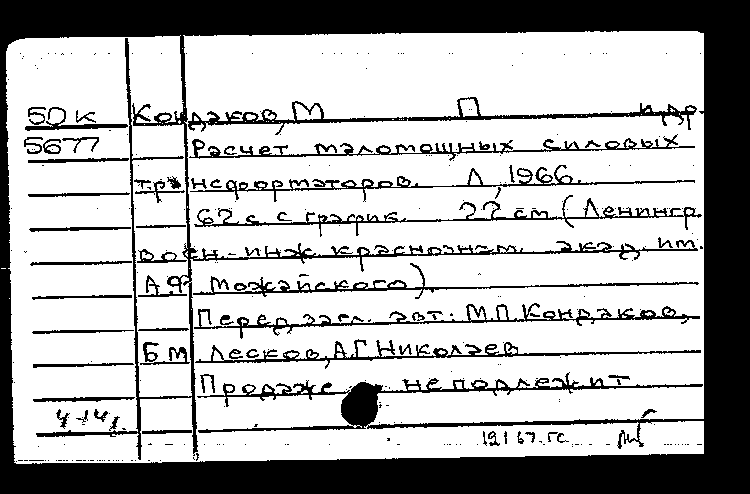 50к Кондаков, М П и др.
5677 Расчет маломощных силовых
трансформаторов. Л, 1966.
62 с с график. 22 см (Ленингр.
воен.-инж краснознам. акад. им.
А.Ф. Можайского).
Перед загл. авт: М.П. Кондаков,
Б М. Лесков, А.Г. Николаев
Продаже не подлежит